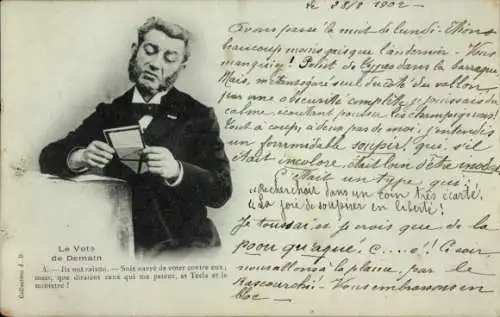 le 28/8 1902
Avons passé la nuit de lundi - Moins
beaucoup moins que l'an dernier - Vous
mangiez! Point de types dans la baraque
Mais, m'étant seul du côté du vallon,
par une obscurité complète, je jouissais du
calme, écoutant pousser les champignons!
Tout à coup, à deux pas de moi, j'entendis
un formidable soupir, qui, s'il
était incolore, était loin d'être inodore
C'était un type qui:
"Recherchait dans un coin très écarté,
"La joie de soupirer en liberté!
Je toussai, et je crois que de la
peur qu'a que, c....o..! Ce soir,
nous allons à la plaine, par le
Rascourchi - Vous embrassons en
bloc -
Le Vote
de Demain
A. — Ils ont raison. — Suis navré de voter contre eux;
mais, que diraient ceux qui me paient, et Tecle et le
ministre!
Collection J. B